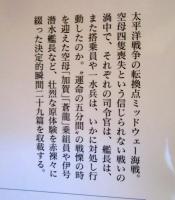 太平洋戦争の転換点ミッドウェー海戦。
空母四隻喪失という信じられない戦いの
渦中で、それぞれの司令官は、艦長は、
また搭乗員や一水兵は、いかに対処し行
動したのか。"運命の五分間"の戦慄の時
を迎えた空母「加賀」「蒼龍」乗組員や伊号
潜水艦長など、壮烈な原体験を赤裸々に
綴った決定的瞬間二十九篇を収載する。